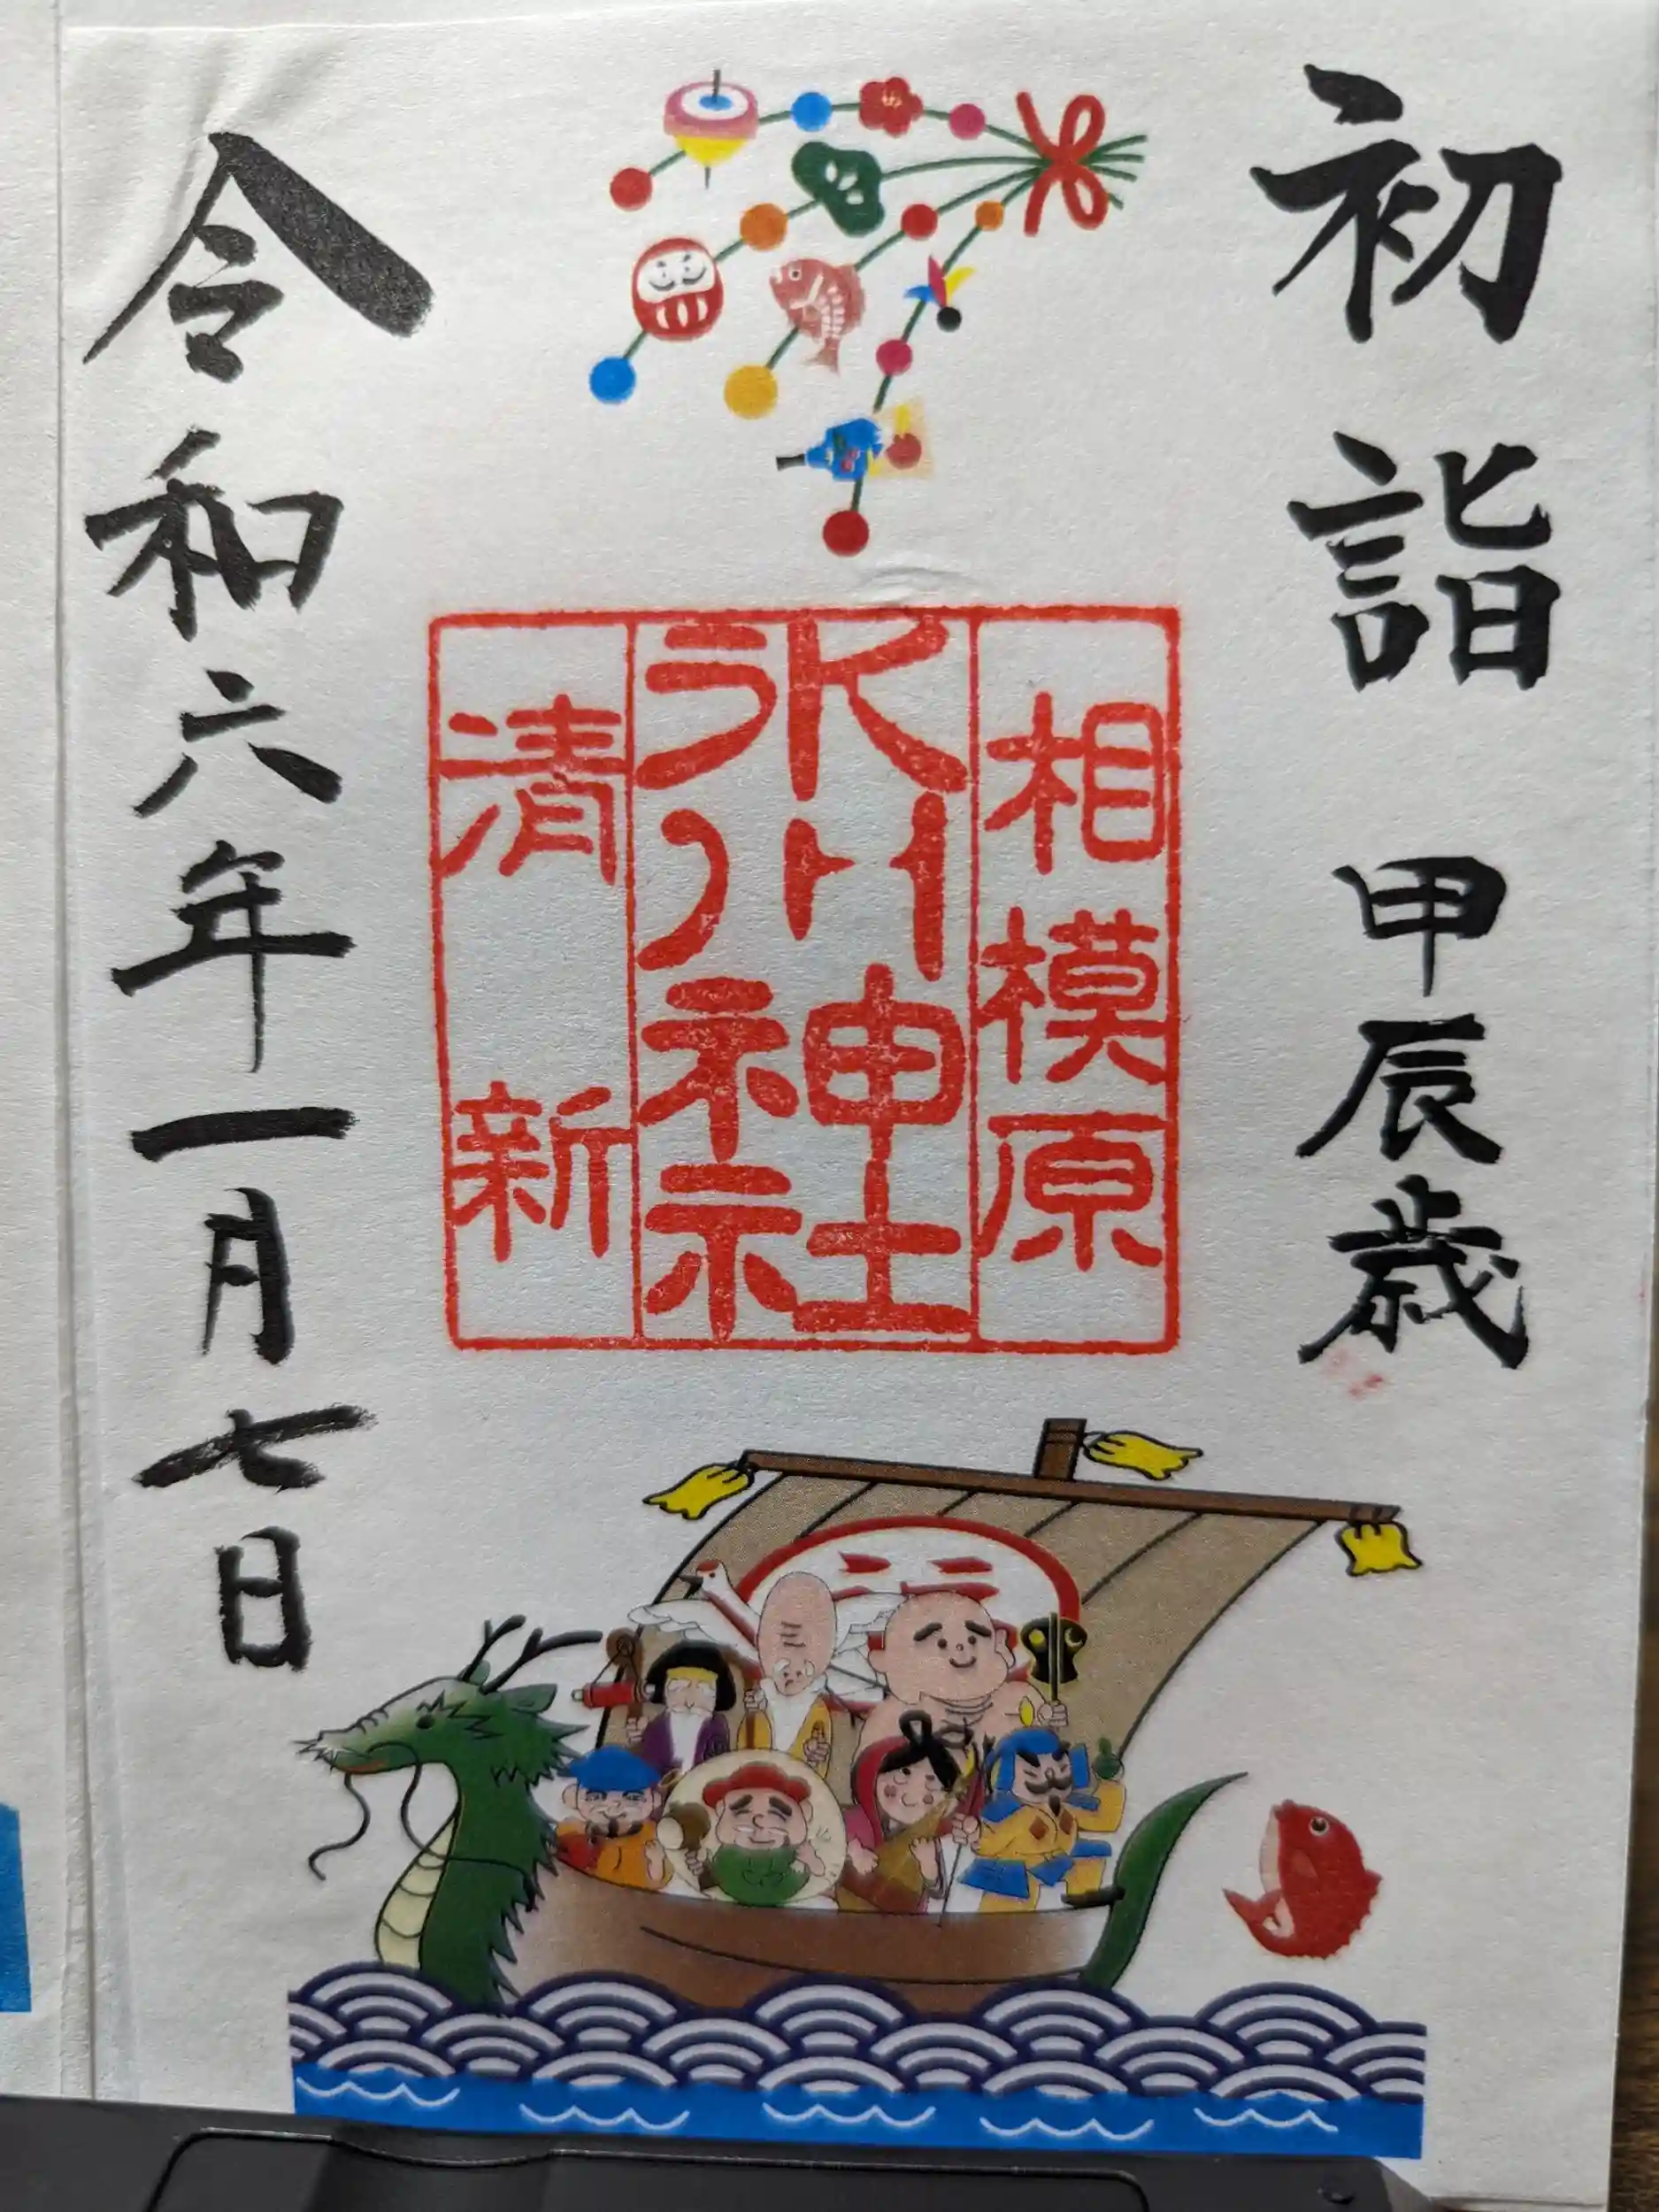 初詣 甲辰歳
相模原
氷川神社
清新
令和六年一月七日